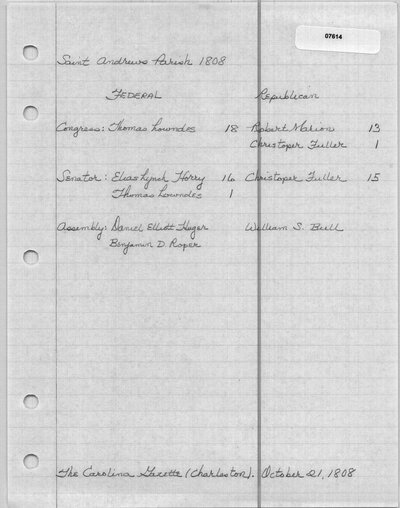 07614
Saint Andrews Parish 1808
FEDERAL Republican
Congress: Thomas Lowndes 18 Robert Marion 13
Christoper Fuller 1
Senator: Elias Lynch Horry 16 Christoper Fuller 15
Thomas Lowndes 1
Assembly: Daniel Elliott Huger William S. Bull
Benjamin D. Roper
The Carolina Gazette (Charleston). October 21, 1808